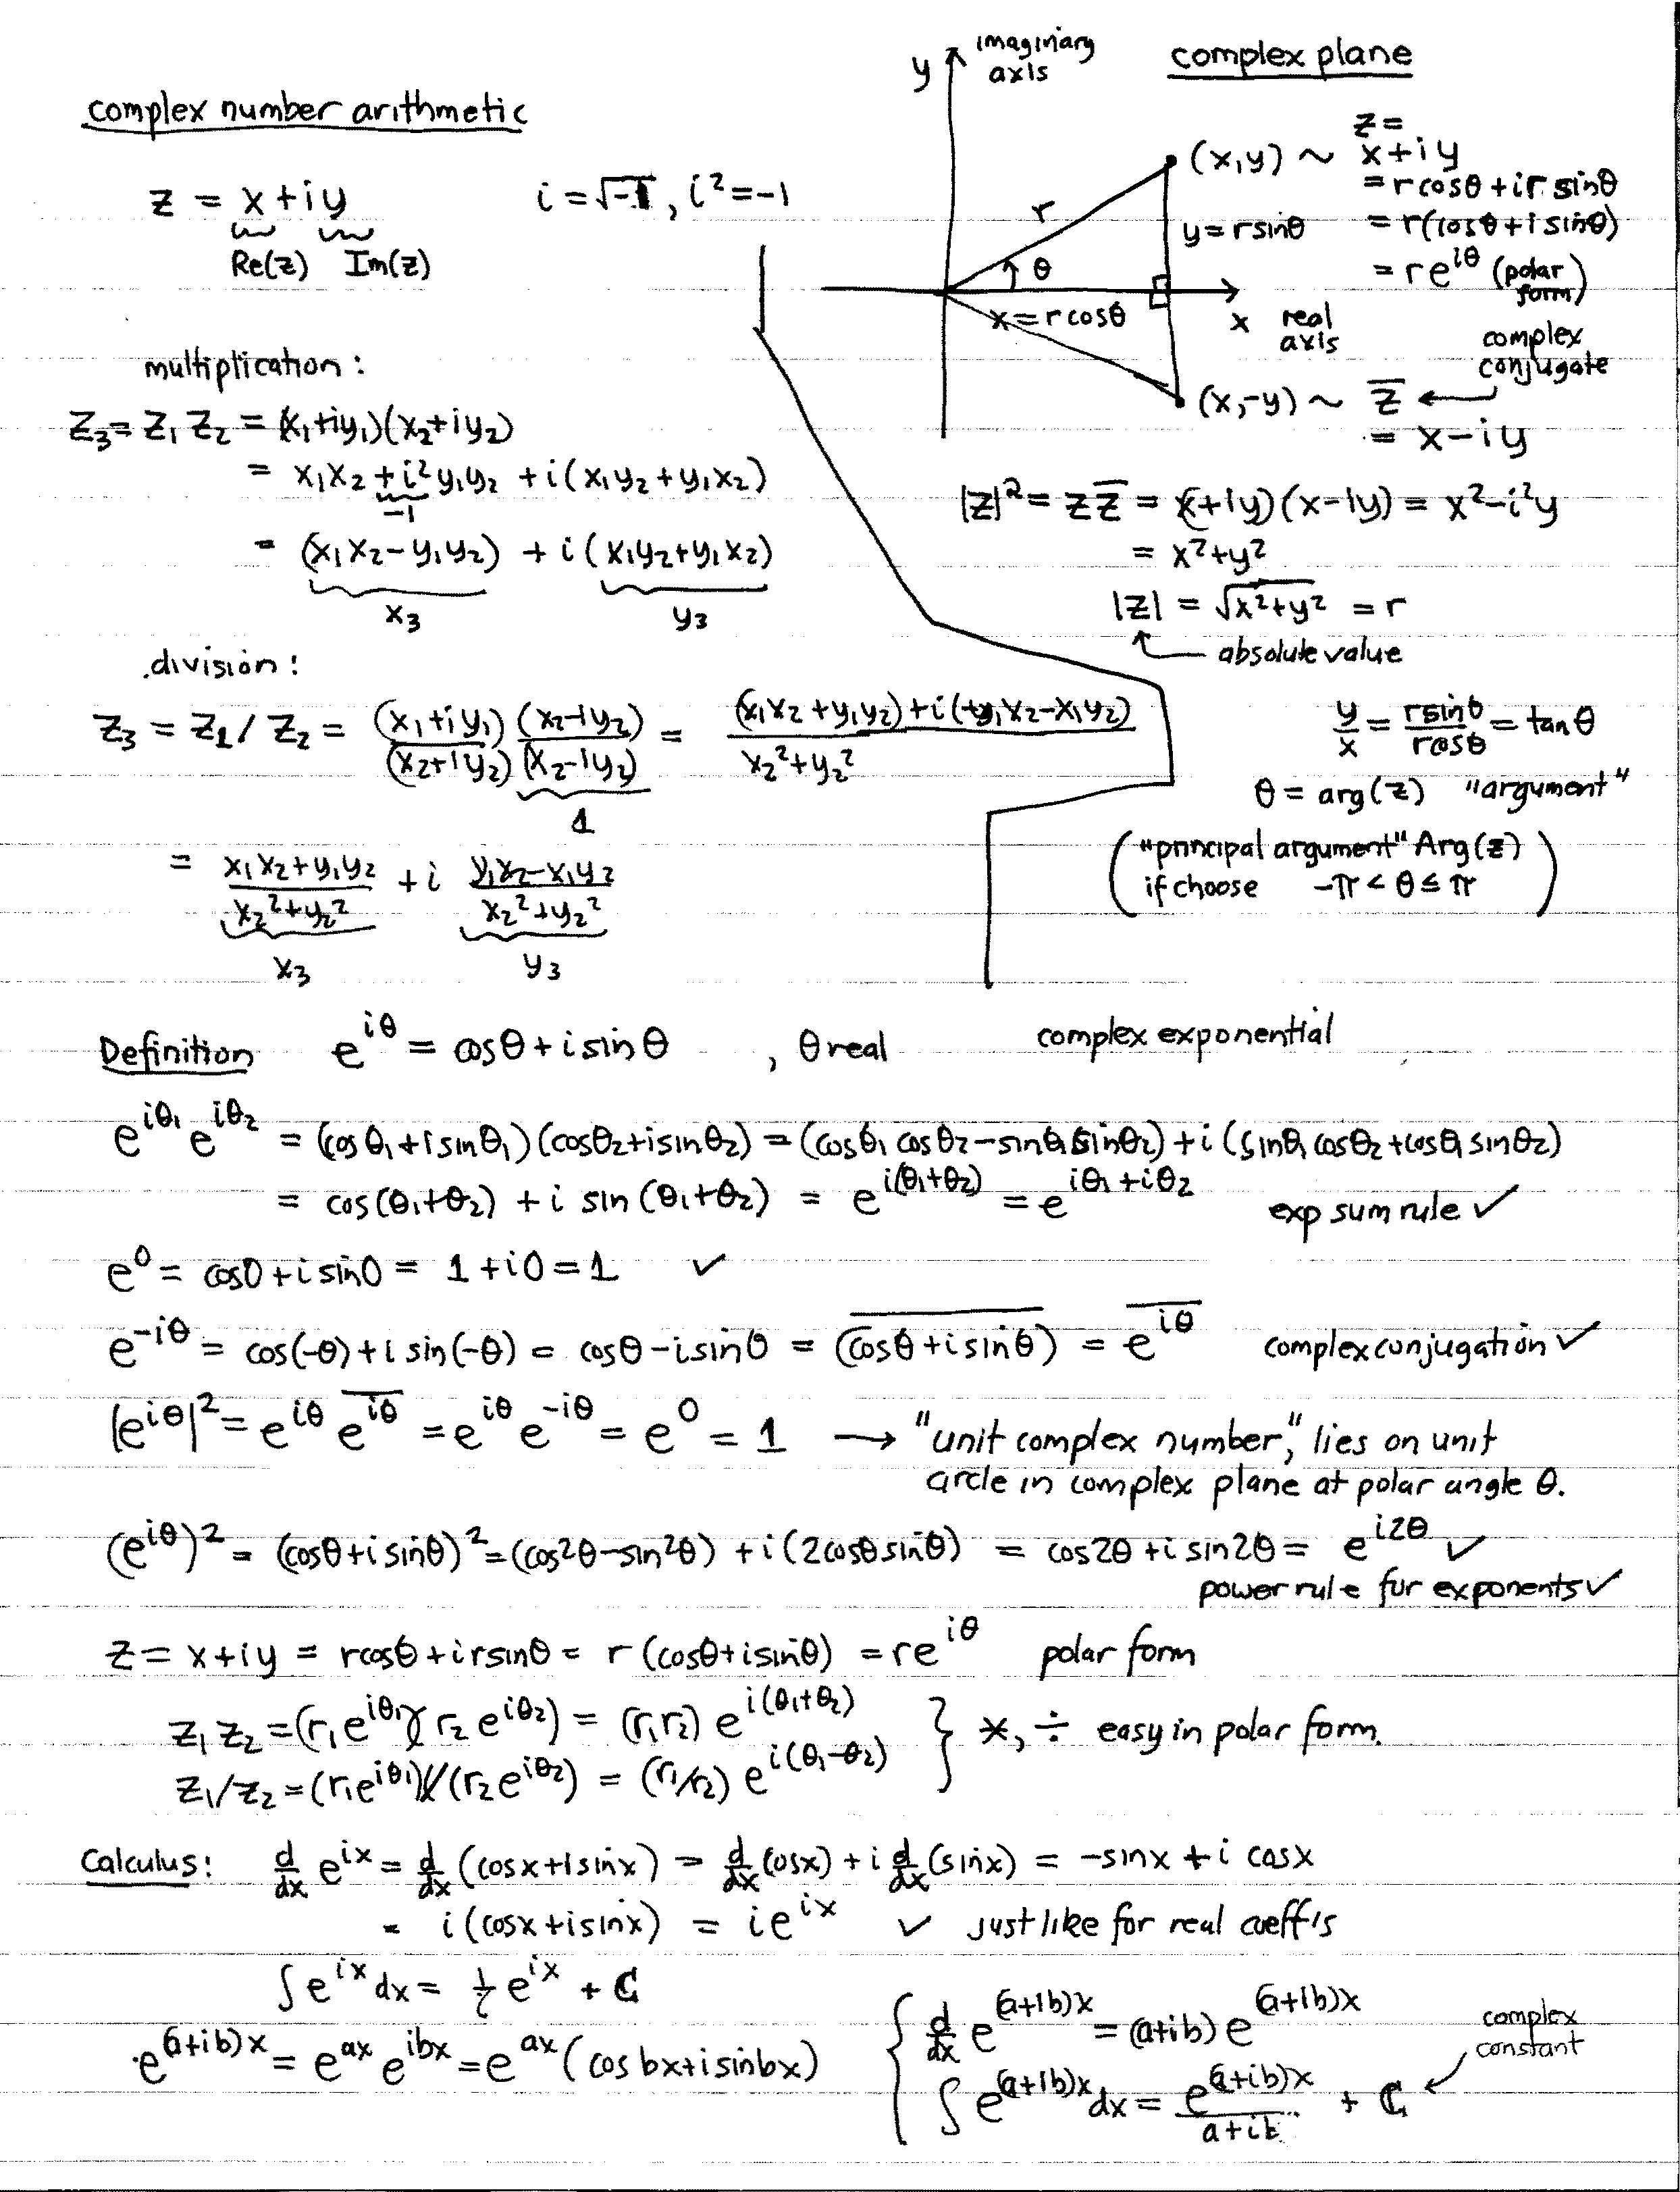 complex number arithmetic
z = x+iy      i = √-1, i² = -1
Re(z)   Im(z)
multiplication:
z₃ = z₁ z₂ = (x₁+iy₁)(x₂+iy₂)
= x₁x₂ + i² y₁y₂ + i(x₁y₂+y₁x₂)
-1
= (x₁x₂-y₁y₂) + i(x₁y₂+y₁x₂)
x₃   y₃
division:
z₃ = z₁/z₂ = (x₁+iy₁)/(x₂+iy₂) (x₂-iy₂)/(x₂-iy₂) = ((x₁x₂+y₁y₂)+i(+y₁x₂-x₁y₂))/(x₂²+y₂²)
1
= (x₁x₂+y₁y₂)/(x₂²+y₂²) + i (y₁x₂-x₁y₂)/(x₂²+y₂²)
x₃   y₃
complex plane
y imaginary
axis
z =
(x,y) ~ x+iy
= r cosθ + i r sinθ
= r(cosθ + i sinθ)
= re^{iθ} (polar
form)
r
θ
y = r sinθ
x = r cosθ
x real
axis
complex
conjugate
(x,-y) ~ z̄ ←
= x-iy
|z|² = z z̄ = (x+iy)(x-iy) = x²-i²y
= x²+y²
|z| = √(x²+y²) = r
absolute value
y/x = r sinθ / r cosθ = tanθ
θ = arg(z) "argument"
("principal argument" Arg(z)
if choose -π < θ ≤ π)
Definition   e^{iθ} = cosθ + i sinθ   , θ real   complex exponential
e^{iθ₁} e^{iθ₂} = (cosθ₁+i sinθ₁)(cosθ₂+i sinθ₂) = (cosθ₁ cosθ₂ - sinθ₁ sinθ₂) + i(sinθ₁ cosθ₂ + cosθ₁ sinθ₂)
= cos(θ₁+θ₂) + i sin(θ₁+θ₂) = e^{i(θ₁+θ₂)} = e^{iθ₁+iθ₂}   exp sum rule ✓
e⁰ = cos0 + i sin0 = 1 + i0 = 1 ✓
e^{-iθ} = cos(-θ) + i sin(-θ) = cosθ - i sinθ = \overline{(cosθ + i sinθ)} = \overline{e^{iθ}}   complex conjugation ✓
|e^{iθ}|² = e^{iθ} \overline{e^{iθ}} = e^{iθ} e^{-iθ} = e⁰ = 1 → "unit complex number," lies on unit
circle in complex plane at polar angle θ.
(e^{iθ})² = (cosθ + i sinθ)² = (cos²θ - sin²θ) + i(2cosθ sinθ) = cos2θ + i sin2θ = e^{i2θ} ✓
power rule for exponents ✓
z = x+iy = r cosθ + i r sinθ = r(cosθ + i sinθ) = re^{iθ}   polar form
z₁ z₂ = (r₁e^{iθ₁})(r₂ e^{iθ₂}) = (r₁r₂) e^{i(θ₁+θ₂)}
z₁/z₂ = (r₁e^{iθ₁})/(r₂e^{iθ₂}) = (r₁/r₂) e^{i(θ₁-θ₂)}
} *, ÷ easy in polar form.
Calculus: d/dx e^{ix} = d/dx (cosx + i sinx) = d/dx (cosx) + i d/dx (sinx) = -sinx + i cosx
= i(cosx + i sinx) = ie^{ix} ✓ just like for real coeff's
∫ e^{ix} dx = 1/i e^{ix} + C
e^{(a+ib)x} = e^{ax} e^{ibx} = e^{ax} (cos bx + i sin bx)
{ d/dx e^{(a+ib)x} = (a+ib) e^{(a+ib)x}
∫ e^{(a+ib)x} dx = e^{(a+ib)x}/(a+ib) + C
complex
constant